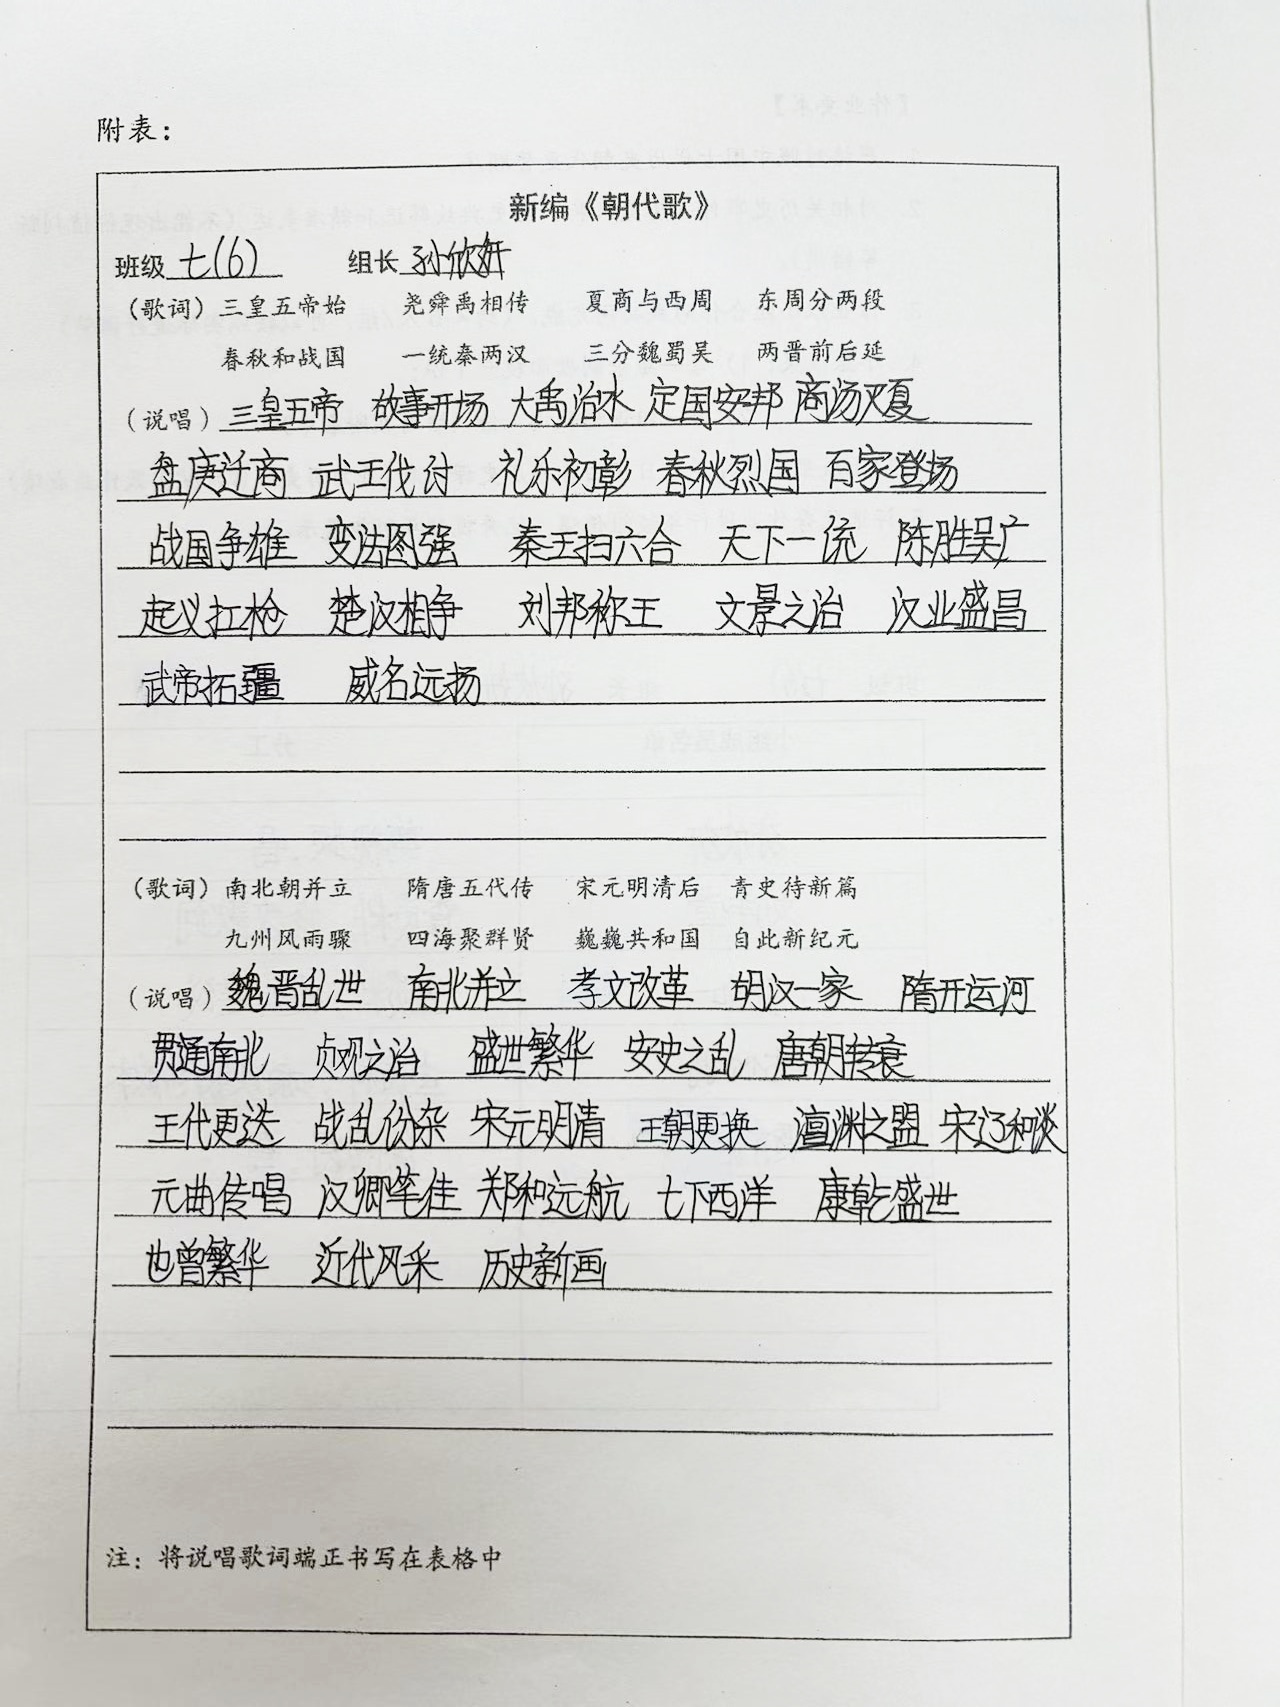 附表：
新编《朝代歌》
班级 七(6) 组长 孙欣妍
（歌词）三皇五帝始 尧舜禹相传 夏商与西周 东周分两段
春秋和战国 一统秦两汉 三分魏蜀吴 两晋前后延
（说唱）三皇五帝 故事开场 大禹治水 定国安邦 商汤灭夏
盘庚迁商 武王伐纣 礼乐初彰 春秋烈国 百家登场
战国争雄 变法图强 秦王扫六合 天下一统 陈胜吴广
起义扛枪 楚汉相争 刘邦称王 文景之治 汉业盛昌
武帝拓疆 威名远扬
（歌词）南北朝并立 隋唐五代传 宋元明清后 青史待新篇
九州风雨骤 四海聚群贤 巍巍共和国 自此新纪元
（说唱）魏晋乱世 南北并立 孝文改革 胡汉一家 隋开运河
贯通南北 贞观之治 盛世繁华 安史之乱 唐朝转衰
王代更迭 战乱份杂 宋元明清 王朝更换 澶渊之盟 宋辽和谈
元曲传唱 汉卿笔佳 郑和远航 七下西洋 康乾盛世
也曾繁华 近代风采 历史新画
注：将说唱歌词端正书写在表格中